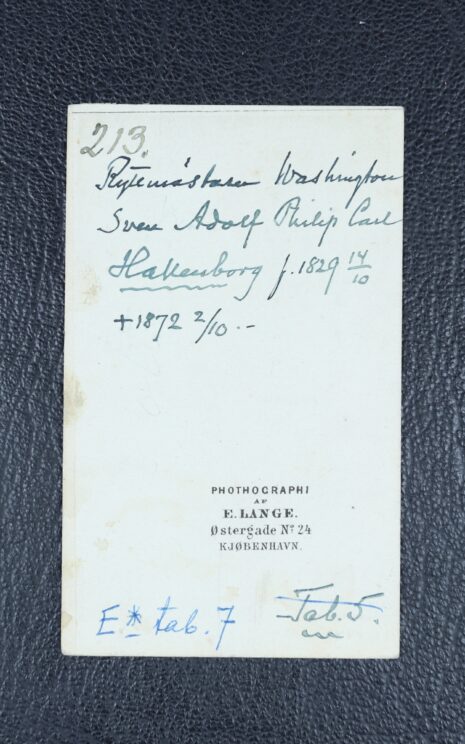 213.
Ryttmästaren Washington
Sven Adolf Philip Carl
Hallenborg f. 1829 14/10
+1872 2/10.-
PHOTHOGRAPHI
AF
E. LANGE.
Østergade Nº 24
KJØBENHAVN.
E* tab. 7
Tab. 5.